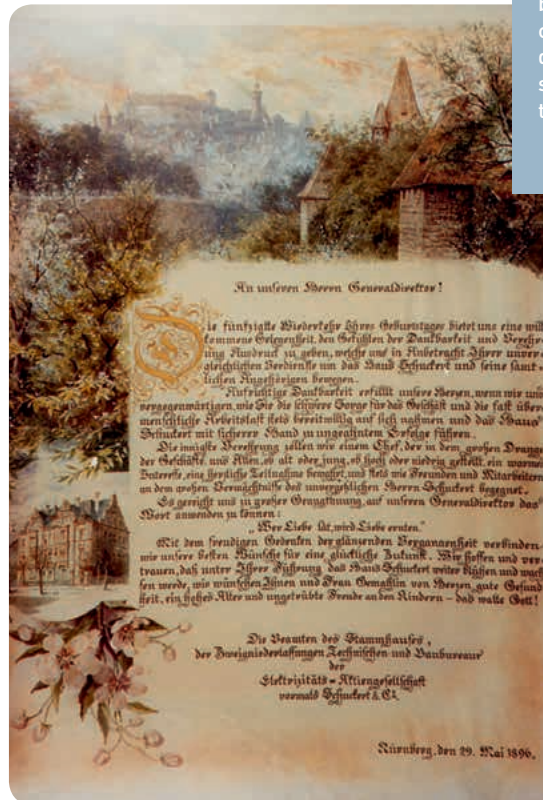 An unseren Herrn Generaldirektor!
Die fünfzigste Wiederkehr Ihres Geburtstages bietet uns eine will
kommene Gelegenheit, den Gefühlen der Dankbarkeit und Verehr
ung Ausdruck zu geben, welche uns in Anbetracht Ihrer unver
gleichlichen Verdienste um das Haus Schuckert und seine sämt
lichen Angehörigen bewegen.
Aufrichtige Dankbarkeit erfüllt unsere Herzen, wenn wir uns
vergegenwärtigen, wie Sie die schwere Sorge für das Geschäft und die fast über
menschliche Arbeitslast stets bereitwillig auf sich nahmen und das Haus
Schuckert mit sicherer Hand zu ungeahntem Erfolge führen.
Die innigste Verehrung zollen wir einem Chef, der in dem großen Drange
der Geschäfte uns Allen, ob alt oder jung, ob hoch oder niedrig gestellt, ein warmes
Interesse, eine herzliche Teilnahme bewahrt, und stets wie Freunden und Mitarbeitern
an dem großen Vermächtnisse des unvergeßlichen Herrn Schuckert begegnet.
Es gereicht uns zu großer Genugthuung, auf unseren Generaldirektor das
Wort anwenden zu können:
„Wer Liebe sät, wird Liebe ernten."
Mit dem freudigen Gedenken der glänzenden Vergangenheit verbinden
wir unsere besten Wünsche für eine glückliche Zukunft. Wir hoffen und ver
trauen, daß unter Ihrer Führung das Haus Schuckert weiter blühen und wach
sen werde, wir wünschen Ihnen und Frau Gemahlin von Herzen gute Gesund
heit, ein hohes Alter und ungetrübte Freude an den Kindern – das walte Gott!
Die Beamten des Stammhauses,
der Zweigniederlassungen Technischen und Baubureaux
der
Elektrizitäts-Aktiengesellschaft
vormals Schuckert & Co.
Nürnberg, den 29. Mai 1896.